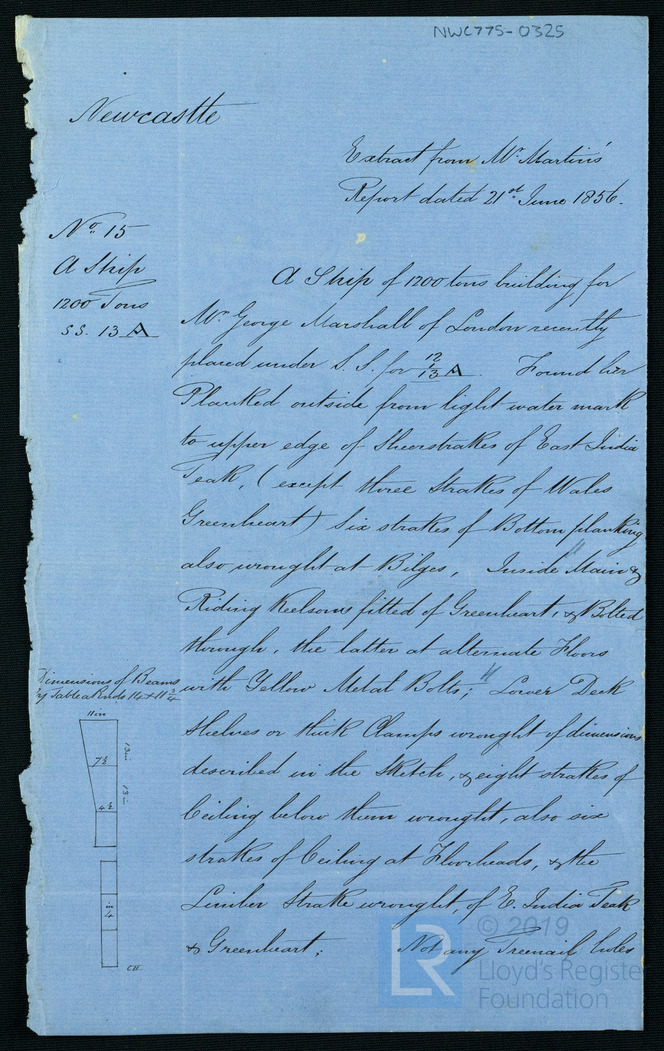 NWC775-0325
Newcastle
Extract from Mr. Martin's
Report dated 21st June 1856.
No. 15
A Ship
1200 Tons
S.S. 13 A
A Ship of 1200 tons building for
Mr. George Marshall of London recently
placed under S.S. for 12/13 A Found her
Planked outside from light water mark
to upper edge of Sheerstrakes of East India
Teak, (except three Strakes of Wales
Greenheart) Six strakes of Bottom planking
also wrought at Bilges, Inside Main &
Riding Keelsons fitted of Greenheart, & Bolted
through, the latter at alternate Floors
with Yellow Metal Bolts; Lower Deck
Shelves or thick Clamps wrought of dimensions
described in the Sketch, & eight strakes of
Ceiling below them wrought, also six
strakes of Ceiling at Floorheads, & the
Limber Strake wrought, of E. India Teak
& Greenheart; Not any Treenail holes
Dimensions of Beams
by Table a Ends 14 & 11 3/4
11 in
7½
13 in
13 in
4½
© 2019
Lloyd's Register
Foundation
LR